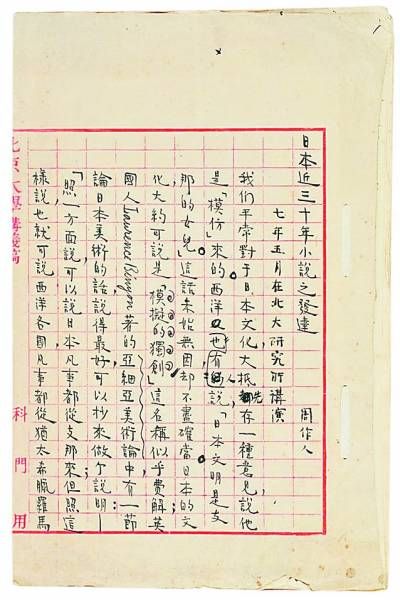 日本近三十年小說之發達
七年五月在北大研究所講演　周作人
我們平常對于日本文化大抵先存一種意見說他
是「模仿」來的西洋也有人說「日本文明是支
那的女兒」這話未始無因却不盡確當日本的文
化大約可說是「模擬的獨創」這名稱似乎費解英
國人Laurence Binyon著的亞細亞美術論中有一節
論日本美術的話說得最好可以抄來做个說明—
「照一方面說可以說日本凡事都從支那來但照這
樣說也就可說西洋各國凡事都從猶太希臘羅馬
北京大學講義稿
科　門　用